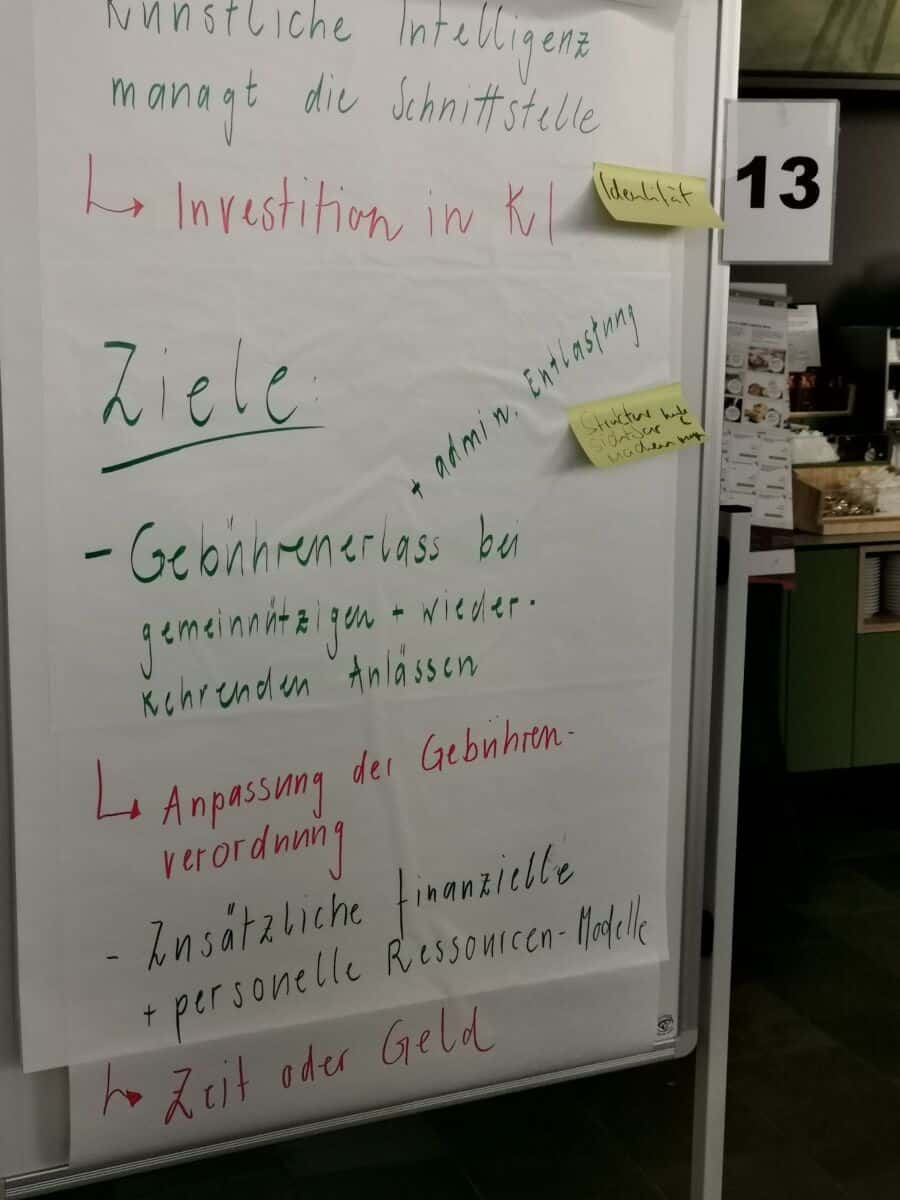 Künstliche Intelligenz
managt die Schnittstelle
↳ Investition in KI
Identität
13
Ziele:
+ admin. Entlastung
Struktur
sichtbar
machen
- Gebührenerlass bei
gemeinnützigen + wieder-
kehrenden Anlässen
↳ Anpassung der Gebühren-
verordnung
- Zusätzliche finanzielle
+ personelle Ressourcen-Modelle
↳ Zeit oder Geld